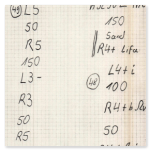 (49) L5
50
R5
150
L3-
R3
50
R5
150
Sand
R4+ Life
L4+i
(48) 100
50